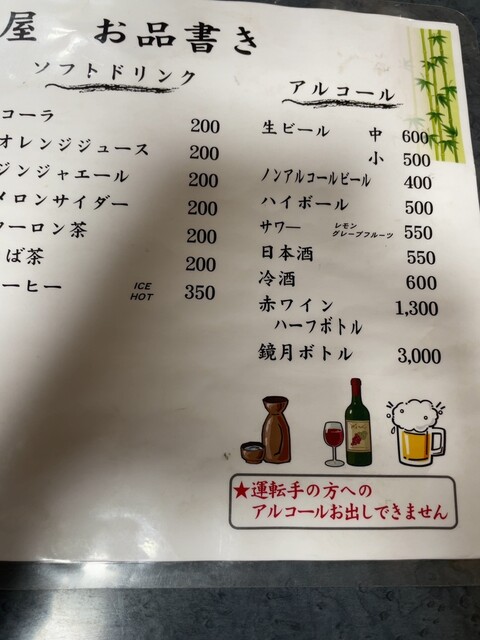 屋 お品書き
ソフトドリンク
コーラ 200
オレンジジュース 200
ジンジャエール 200
メロンサイダー 200
ウーロン茶 200
ば茶 200
ーヒー ICE HOT 350
アルコール
生ビール 中 600
小 500
ノンアルコールビール 400
ハイボール 500
サワー レモン グレープフルーツ 550
日本酒 550
冷酒 600
赤ワイン 1,300
ハーフボトル
鏡月ボトル 3,000
★運転手の方への
アルコールお出しできません